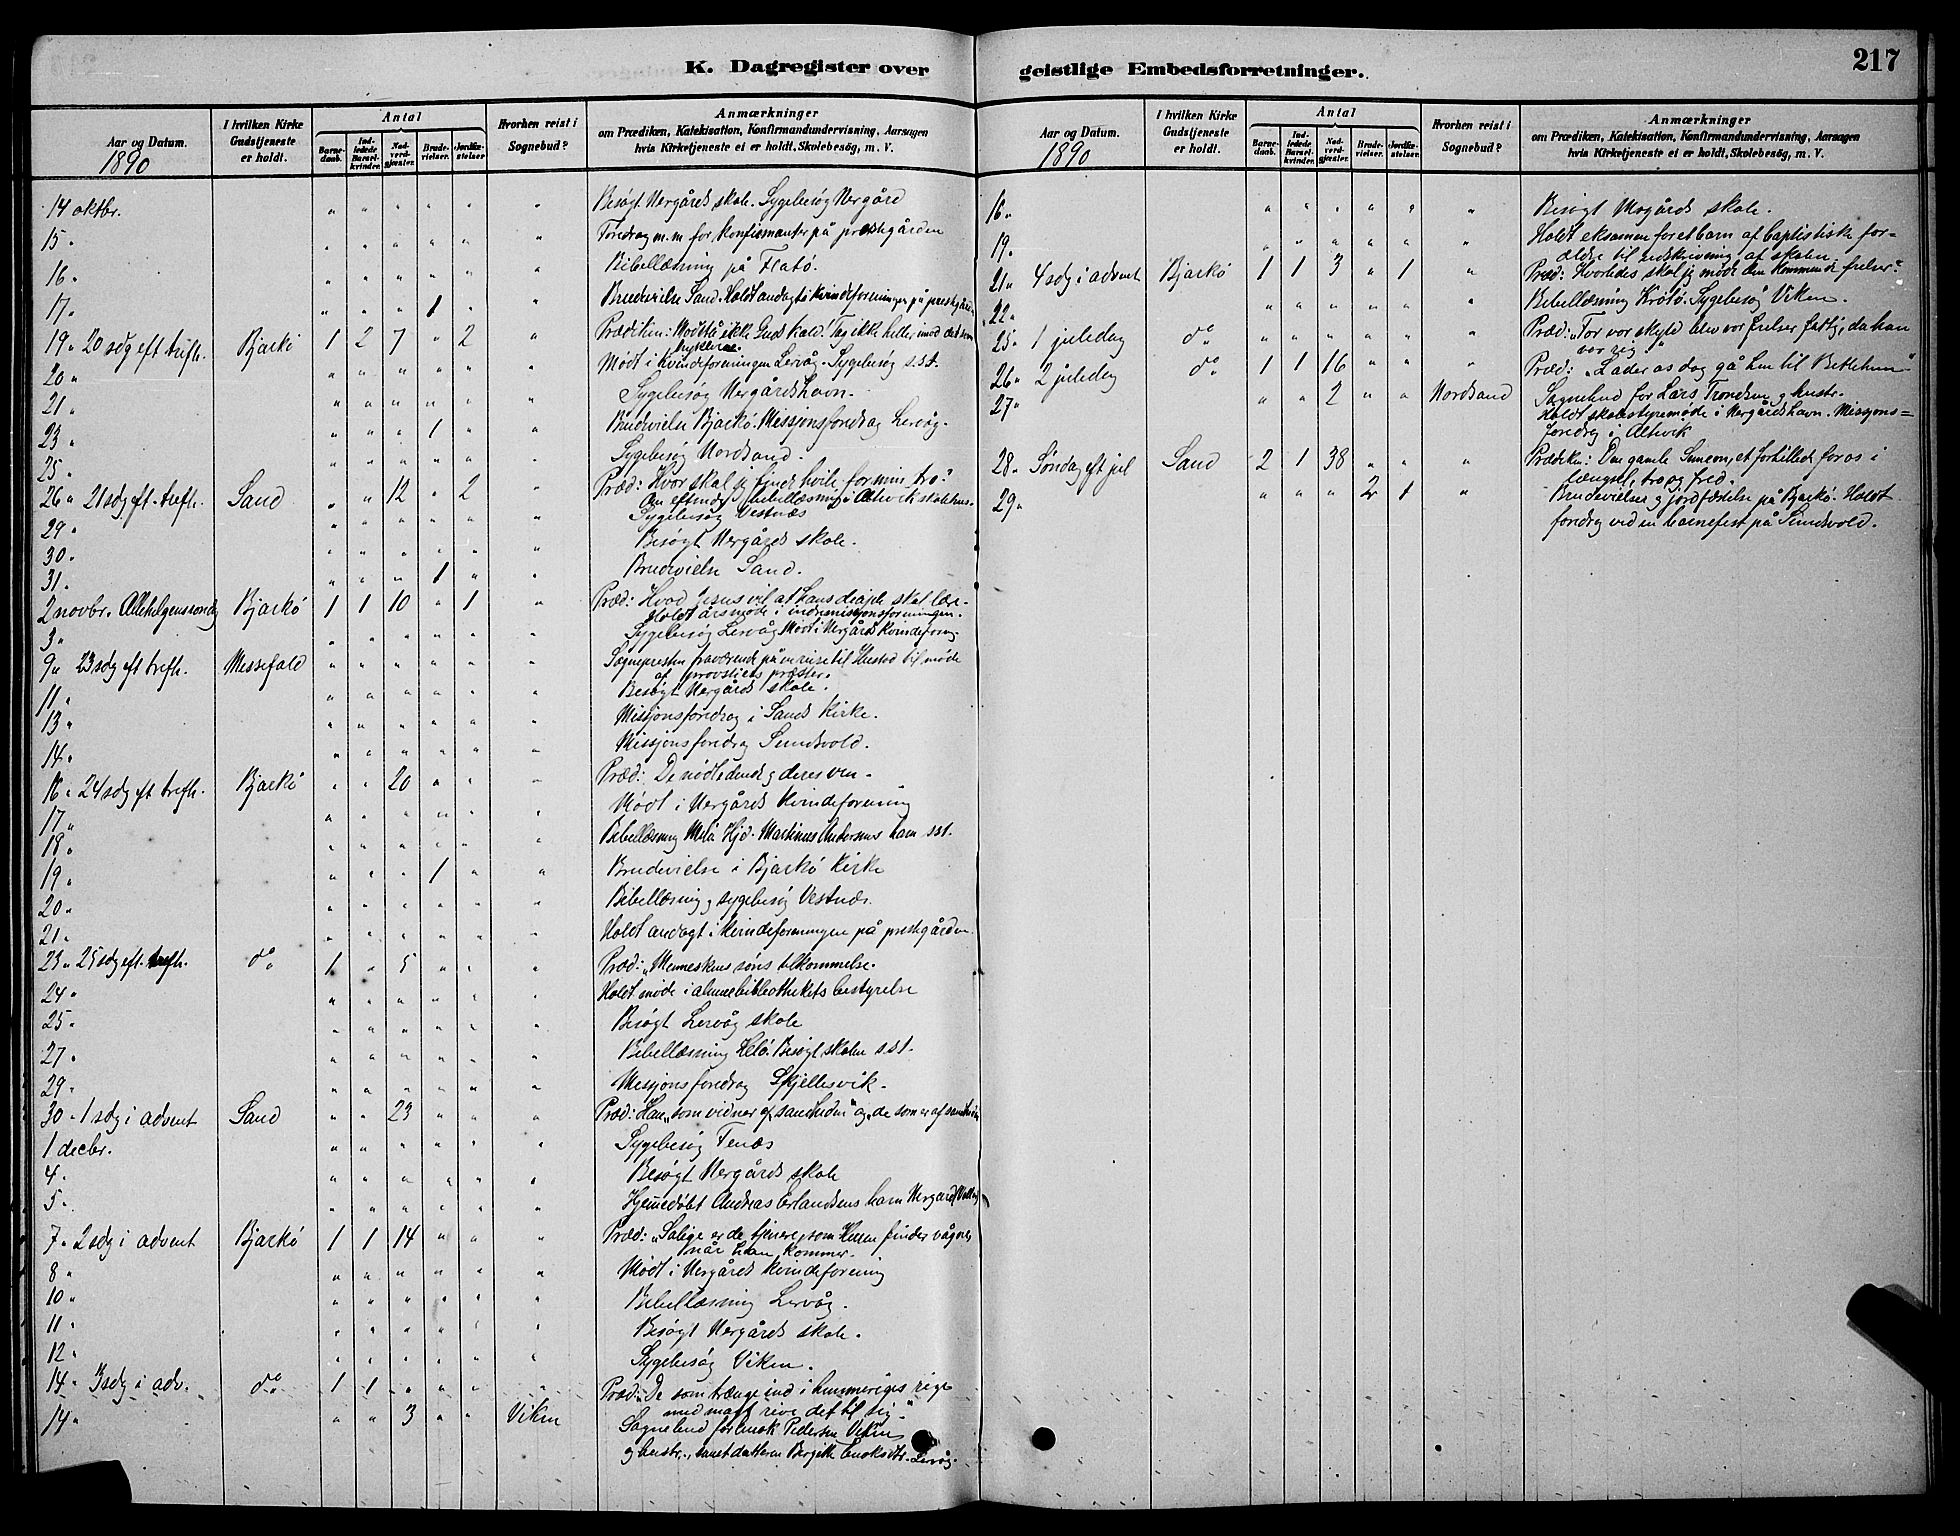 K. Dagregister over geistlige Embedsforretninger. 217
Aar og Datum. 1890
I hvilken Kirke Gudstjeneste er holdt.
Antal
Barnedaab.
Indledede Barselkvinder.
Nadverdgjester.
Brudevielser.
Jordfæstelser.
Hvorhen reist i Sognebud?
Anmærkninger
om Prædiken, Katekisation, Konfirmandundervisning, Aarsagen
hvis Kirketjeneste ei er holdt, Skolebesög, m. V.
14 oktbr. " " " " " " Besøgt Nergårds skole. Sygebesøg Nergård
15 " " " " " " " Foredrag m.m for konfirmanter på prestegården
16 " " " " " " " Bibellæsning på Flatø.
17 " " " " 1 " " Brudevielse Sand. Holdt andagt i kvindeforeningen på prestegården
19 " 20 sdg eft trefh. Bjarkø 1 2 7 " 2 " Prædiken: Modstå ikke Guds kald! Tag ikke heller imod det som
hyklerne.
20 " " " " " " " Mødt i kvindeforeningen Lervåg. Sygebesøg s.st.
21 " " " " " " " Sygebesøg Nergårdshavn.
23 " " " " 1 " " Brudevielse Bjarkø. Missjonsforedrag Lervåg.
25 " " " " " " " Sygebesøg Nordsand.
26 " 21 sdg eft. trefh. Sand " " 12 " 2 " Præd: Hvor skal jeg finde hvile for min tro?
Om eftmdg bibellæsning i Altevik skolehus.
29 " " " " " " " Sygebesøg Vestnæs
30 " " " " " " " Besøgt Nergårds skole.
31 " " " " 1 " " Brudevielse Sand.
2 novbr. Allehelgenssøndg Bjarkø 1 1 10 " 1 " Præd: Hvad Jesus vil at hans disciple skal lære.
Holdt årsmøde i indremissjonsforeningen.
3 " " " " " " " Sygebesøg Lervåg Mødt i Nergårds kvindeforeng.
9 " 23 sdg eft trefh. Messefald " " " " " " Sognepresten fraværende på en reise til Ibestad til møde
af provstiets præster.
11 " " " " " " " Besøgt Nergårds skole.
13 " " " " " " " Missjonsforedrag i Sands kirke.
14 " " " " " " " Missjonsforedrag Sundsvold.
16 " 24 sdg eft trefh. Bjarkø " " 20 " " " Præd: De nødlidende og deres ven.
17 " " " " " " " Mødt i Nergårds kvindeforening
18 " " " " " " " Bibellæsning Meiå Hjd. Martines Andersens barn s.st.
19 " " " " 1 " " Brudevielse i Bjarkø kirke
20 " " " " " " " Bibellæsning og sygebesøg Vestnæs.
21 " " " " " " " Holdt andagt i kvindeforeningen på prestegården
23 " 25 sdg eft. trefh. do 1 " 5 " " " Præd: "Menneskens søns tilkommelse.
24 " " " " " " " Holdt møde i almuebibliothekets bestyrelse
25 " " " " " " " Besøgt Lervåg skole
27 " " " " " " " Bibellæsning Helø. Besøgt skolen s.st.
29 " " " " " " " Missjonsforedrag Skjellesvik.
30 " 1 sdg i advent Sand " " 23 " " " Præd: Han, "som vidner af sandheden" og "de som er af sandheden
1 decbr. " " " " " " Sygebesøg Fenæs
4 " " " " " " " Besøgt Nergårds skole
5 " " " " " " " Hjemedøbt Andreas Erlandsens barn Nergård
7 " 2 sdg i advent Bjarkø 1 1 14 " " " Præd: "Salige er de tjenere, som Herren finder vågne,
når han kommer.
8 " " " " " " " Mødt i Nergårds kvindeforening
10 " " " " " " " Bibellæsning Lervåg.
11 " " " " " " " Besøgt Nergårds skole.
12 " " " " " " " Sygebesøg Viken.
14 " 3 sdg i adv. do 1 1 " " " " Præd: "De som trænge ind i himmeriges rige
med magt rive det til sig."
14 " " " 3 " " Viken Sognebud for Enok Pedersen Viken
og hustr., samt datteren Bergitte Enoksdtr. Lervåg.
Aar og Datum. 1890
I hvilken Kirke Gudstjeneste er holdt.
Antal
Barnedaab.
Indledede Barselkvinder.
Nadverdgjester.
Brudevielser.
Jordfæstelser.
Hvorhen reist i Sognebud?
Anmærkninger
om Prædiken, Katekisation, Konfirmandundervisning, Aarsagen
hvis Kirketjeneste ei er holdt, Skolebesög, m. V.
16 " " " " " " " Besøgt Nergårds skole.
19 " " " " " " " Holdt eksamen for et barn af baptistiske for-
ældre til udskrivning af skolen
21 " 4 sdg i advent Bjarkø 1 1 3 " 1 " Præd: Hvorledes skal jeg møde den kommende frelser?
22 " " " " " " " Bibellæsning Krøtø. Sygebesøg Viken.
25 " 1 juledag do " " " " " " Præd: "For vor skyld blev vor frelser fattig, da han
var rig"
26 " 2 juledag do 1 1 16 " " Præd: "Lader os dog gå hen til Betlehem"
27 " " " 2 " " Nordsand Sognebud for Lars Trondsen og hustr.
Holdt skolestyremøde i Nergårdshavn. Missjons-
foredrag i Altevik
28 " Søndag eft jul Sand 2 1 38 " " " Prædiken: Den gamle Simeon, et forbillede for os i
længsel, tro og fred.
29 " " " " 2 1 " Brudevielser og jordfæstelse på Bjarkø. Holdt
foredrag ved en barnefest på Sundsvold.